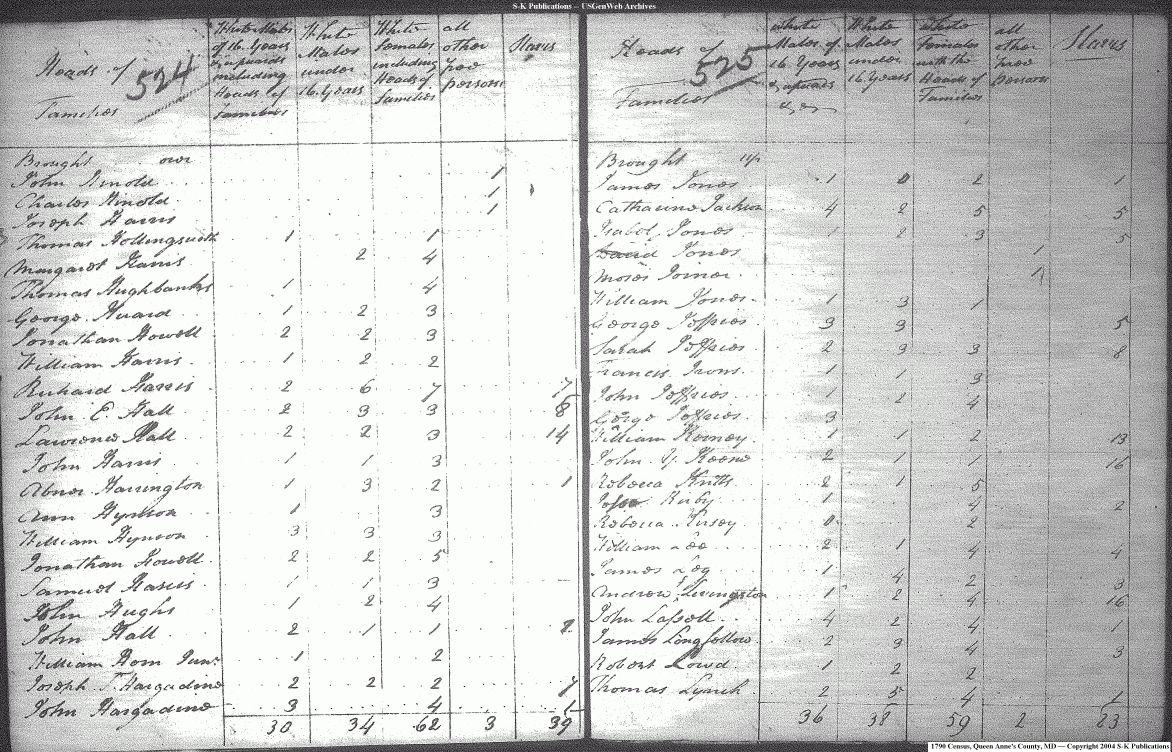 S-K Publications -- USGenWeb Archives
Heads of Families 524 | White Males of 16 Years & upwards including Heads of Families | White Males under 16 Years | White Females including Heads of Families | all other free persons | Slaves
Brought over
John Arnold 1
Charles Arnold 1
Joseph Harris 1
Thomas Hollingsworth 1 1
Margaret Harris 2 4
Thomas Hughbanks 1 4
George Huard 1 2 3
Jonathan Howell 2 2 3
William Harris 1 2 2
Richard Harris 2 6 7 7
John E. Hall 2 3 3 8
Lawrence Hall 2 2 3 14
John Harris 1 1 3
Abner Harrington 1 3 2 1
Ann Hynson 1 3
William Hynson 3 3 3
Jonathan Howell 2 2 5
Samuel Harris 1 1 3
John Hughs 1 2 4
John Hall 2 1 1 2
William Horn Junr 1 2
Joseph T. Hargadine 2 2 2 7
John Hargadine 3 4 1
30 34 62 3 39
Heads of Families 525 | White Males of 16 Years & upwards &c | White Males under 16 Years | White Females with the Heads of Families | all other free persons | Slaves
Brought up
James Jones 1 0 2 1
Catharine Jackson 4 2 5 5
Isabel Jones 1 2 3 5
David Jones 1
Moses Jomer 1
William Jones 1 3 1
George Joffries 3 3 5
Sarah Joffries 2 3 3 8
Francis Irons 1 1 3
John Joffries 1 2 4
George Joffries 3
William Kemey 1 1 2 13
John Y. Keene 2 1 1 16
Rebecca Knitts 2 1 5
Kirby 1 4 2
Rebecca Kersey 0 2
William Lee 2 1 4 4
James Leg 1 4 2 3
Andrew Livingston 1 2 4 16
John Lassell 4 2 4
James Longfellow 2 3 4 3
Robert Lowd 1 2 2
Thomas Lynch 2 5 4 1
36 38 59 2 23
1790 Census, Queen Anne's County, MD — Copyright 2004 S-K Publications